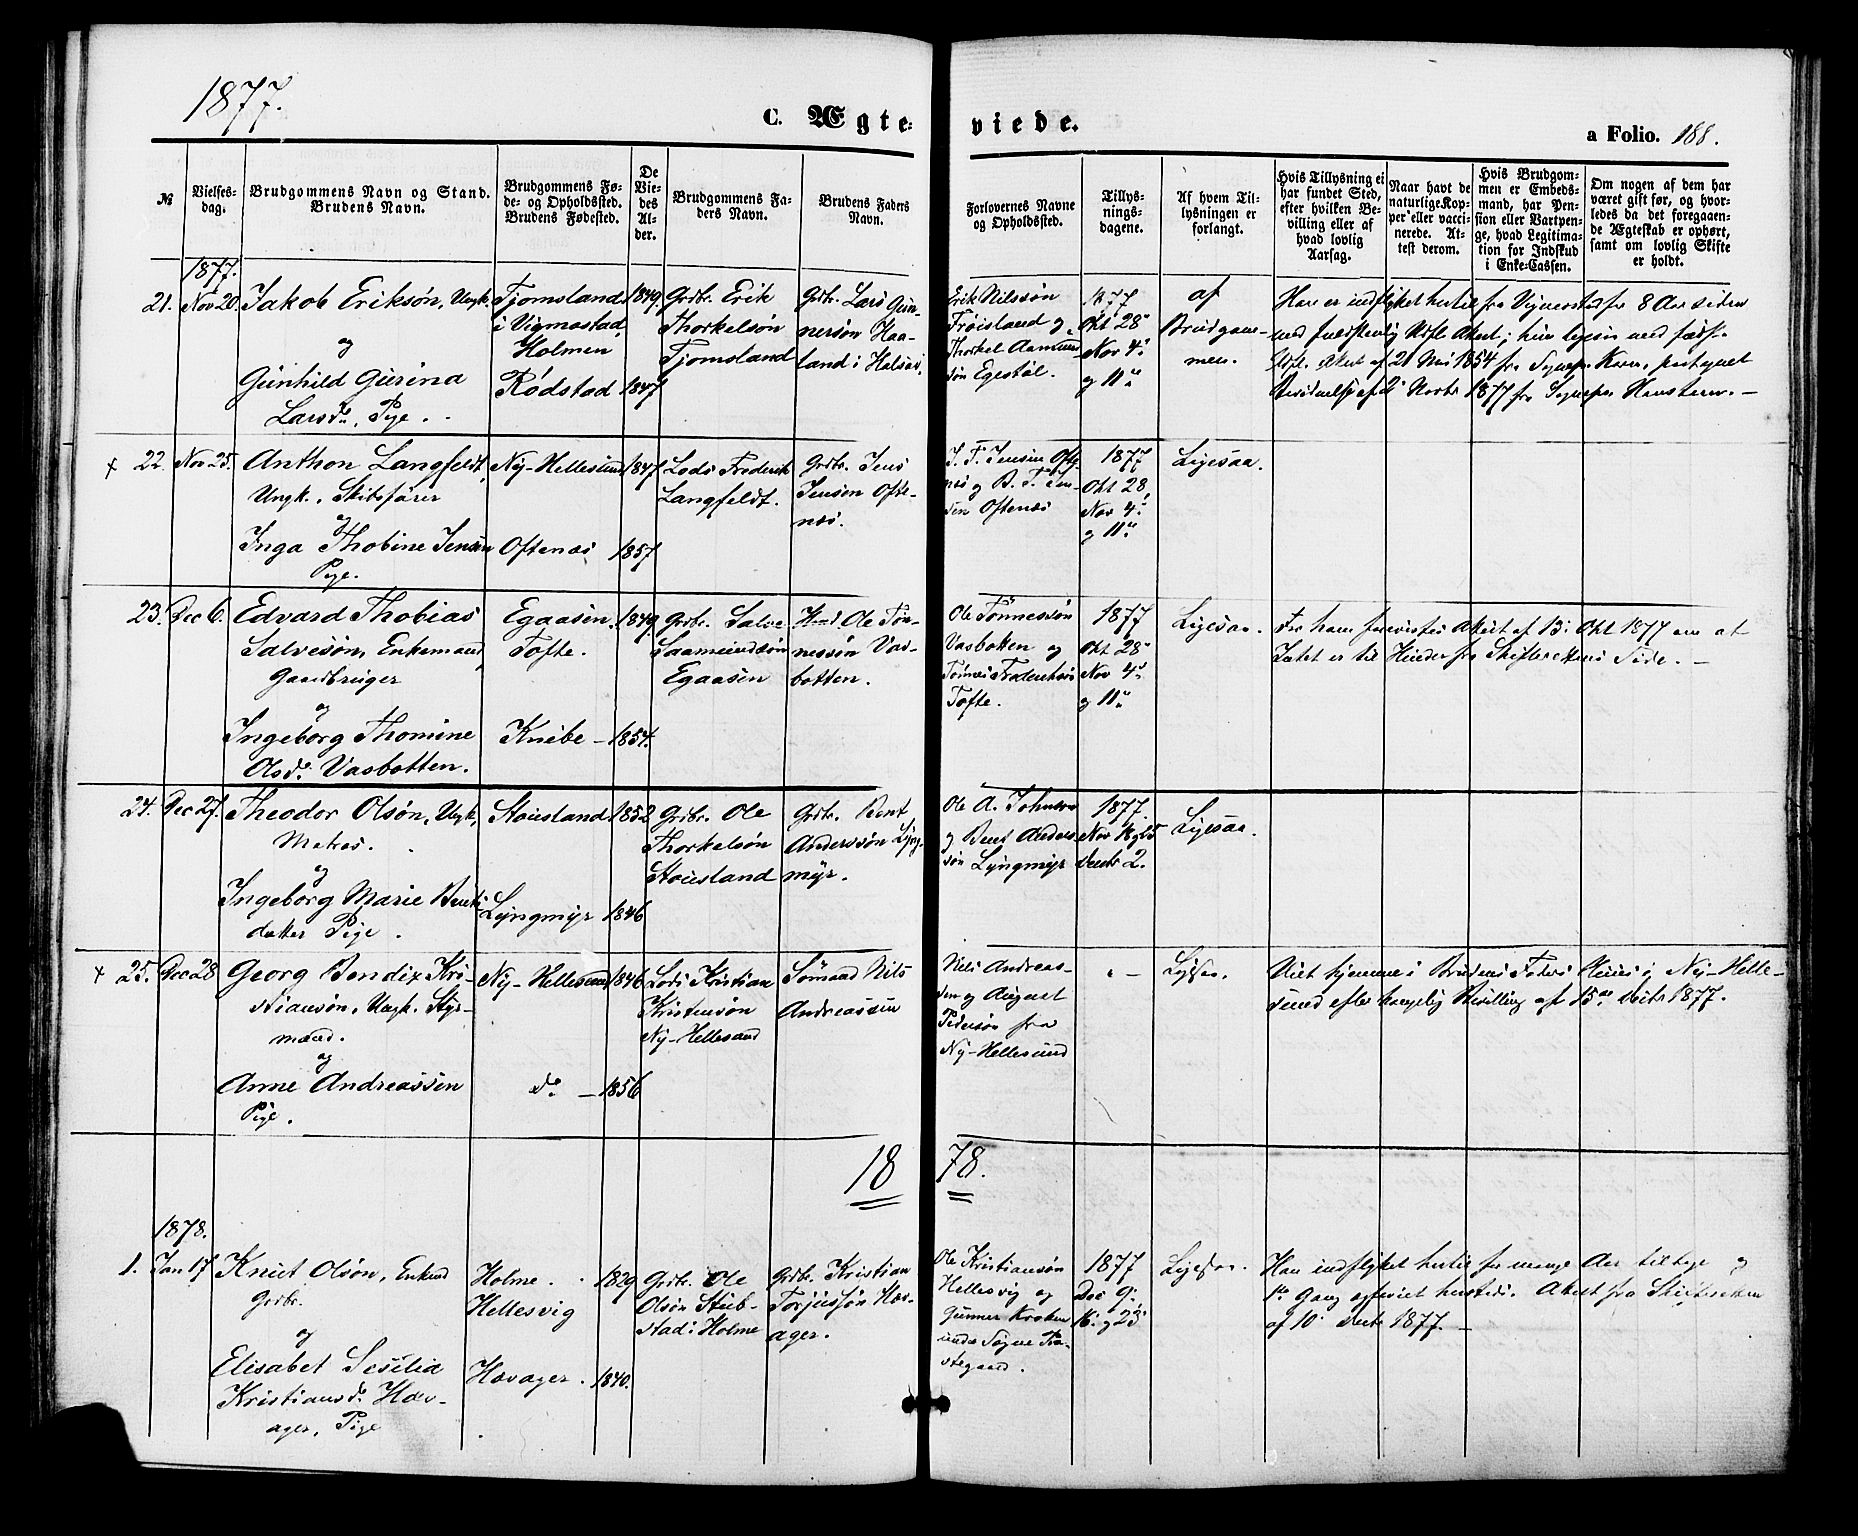 1877.
C. Ægte=
viede.
a Folio. 188.
№
Vielses-
dag.
Brudgommens Navn og Stand.
Brudens Navn.
Brudgommens Fø-
de- og Opholdssted.
Brudens Fødested.
De
Vie-
des
Al-
der.
Brudgommens Fa-
ders Navn.
Brudens Faders
Navn.
Forlovernes Navne
og Opholdssted.
Tillys-
nings-
dagene.
Af hvem Til-
lysningen er
forlangt.
Hvis Tillysning ei
har fundet Sted,
efter hvilken Be-
villing eller af
hvad lovlig
Aarsag.
Naar havt de
naturlige Kop-
per eller vacci-
nerede. At-
test derom.
Hvis Brudgom-
men er Embeds-
mand, har Pen-
sion eller Vartpen-
ge, hvad Legitima-
tion for Indskud
i Enke-Cassen.
Om nogen af dem har
været gift før, og hvor-
ledes da det foregaaen-
de Ægteskab er ophørt,
samt om lovlig Skifte
er holdt.
1877.
21. Nov 20.
Jakob Eriksøn, Ungk.
og
Gunhild Gurina
Larsdr., Pige.
Tjomsland
i Vigmostad,
Holmen
Rødstad
1849
1847
Grdbr. Erik
Thorkelsøn
Tjomsland
Grdbr. Lars Gun-
nersøn Haa-
land i Halsaa.
Erik Nilssøn
Frøisland og
Thorkel Aamund
søn Egestøl.
1877
Okt 28
Nov 4
og 11
af
Brudgom-
men.
Han er indflyttet hertil fra Vigmostad for 8 Aar siden
Attest af 21 Mai 1854 fra
af 2 Novbr 1877 fra
+ 22. Nov 25.
Anthon Langfeldt,
Ungk., Skibsfører
og
Inga Thobine Jensen
Pige.
Ny-Hellesund
Oftenæs
1847
1857
Lods Frederik
Langfeldt.
Grdbr. Jens
Jensen Ofte-
næs.
J. F. Jensen Ofte-
næs og B. T. Jen-
sen Oftenæs
1877
Okt 28,
Nov 4
og 11
Ligesaa.
23. Dec 6.
Edvard Thobias
Salvesøn, Enkemand,
Gaardbruger
og
Ingeborg Thomine
Olsdr. Vasbotten.
Egaasen.
Tofte.
Knibe -
1849
1854.
Grdbr. Salve
Saamundsøn
Egaasen
Ole Tøn-
nessøn Vas-
botten.
Ole Tønnessøn
Vasbotten og
Tønnes Frederiksøn
Tofte.
1877
Okt 28
Nov 4
og 11
Ligesaa.
For ham forevistes Attest af 13: Okt 1877 om at
Intet er til Hinder fra Skifterettens Side. -
24. Dec 27.
Theodor Olsøn, Ungk,
Matros.
og
Ingeborg Marie Bents
datter Pige.
Stousland
Lyngmyr
1852
1846
Grdbr. Ole
Thorkelsøn
Stousland
Grdbr. Bent
Anderssøn Lyng-
myr.
Ole A. Johnsen
og Bent Anders
søn Lyngmyr
1877.
Nov 18 og 25
Decbr 2.
Ligesaa.
+ 25. Dec 28
Georg Bendix Kri-
stiansøn, Ungk. Styr-
mand.
og
Anne Andreassen
Pige.
Ny-Hellesund
do -
1846
1856
Lods Kristian
Kristensøn
Ny-Hellesund
Sømand Nils
Andreassen
Nils Andreas-
sen og August
Pedersøn fra
Ny-Hellesund
" -
Ligesaa.
Viet hjemme i Brudens Faders Huus i Ny-Helle-
sund efter kongelig Bevilling af 15de Decbr 1877.
18
78.
1878.
1. Jan 17
Knut Olsøn, Enkmd
Grdbr.
og
Elisabet Sesilia
Kristiansdr. Hæv-
ager, Pige
Holme.
Hellesvig
Hævager.
1829
1840.
Grdbr. Ole
Olsøn Stub-
stad i Holme
Grdbr. Kristian
Torjussøn Hæv-
ager.
Ole Kristiansøn
Hellesvig og
Gunner Kroken
under Søgne Præ-
stegaard.
1877
Dec 9:
16: og 23:
Ligesaa.
Han indflyttet hertil for mange Aar tilbage og
1ste Gang egteviet hersteds. Attest fra Skifteretten
af 10 Decbr 1877. -